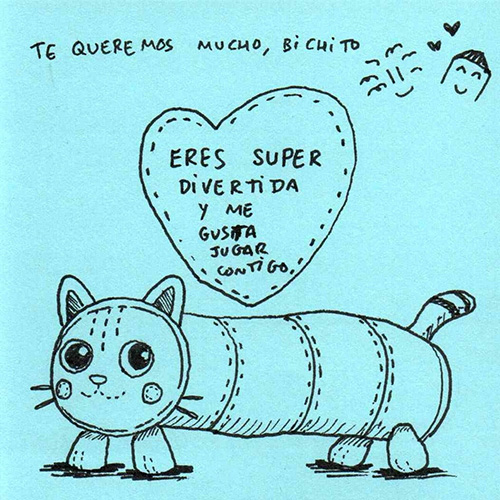 TE QUEREMOS MUCHO, BICHITO
ERES SUPER
DIVERTIDA
Y ME
GUSTA
JUGAR
CONTIGO.